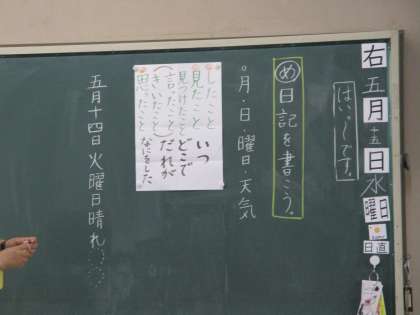 右
五月十五日水曜日
日直
はい。し です。
め 日記を書こう。
。月・日・曜日・天気
したこと
見たこと
見つけたこと
(言ったこと)
(きいたこと)
思ったこと
いつ
どこで
だれが
なにをした
五月十四日火曜日晴れ